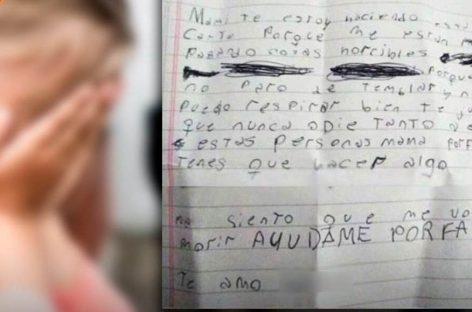 Mami te estoy haciendo esta
Carta Porque me estan
Pasando cosas horribles
Porque
no Paro de temblar y
Puedo respirar bien te
que nunca odie tanto a
estas personas mama PORF
Tenes que hacer algo
ma siento que me vo
morir AYUDAME PORFA
Te amo